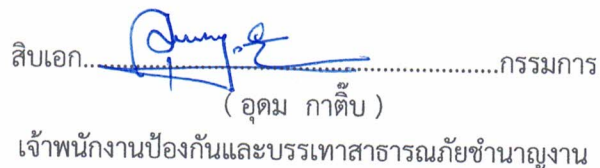 สิบเอก......................................................กรรมการ
( อุดม กาติ๊บ )
เจ้าพนักงานป้องกันและบรรเทาสาธารณภัยชำนาญงาน